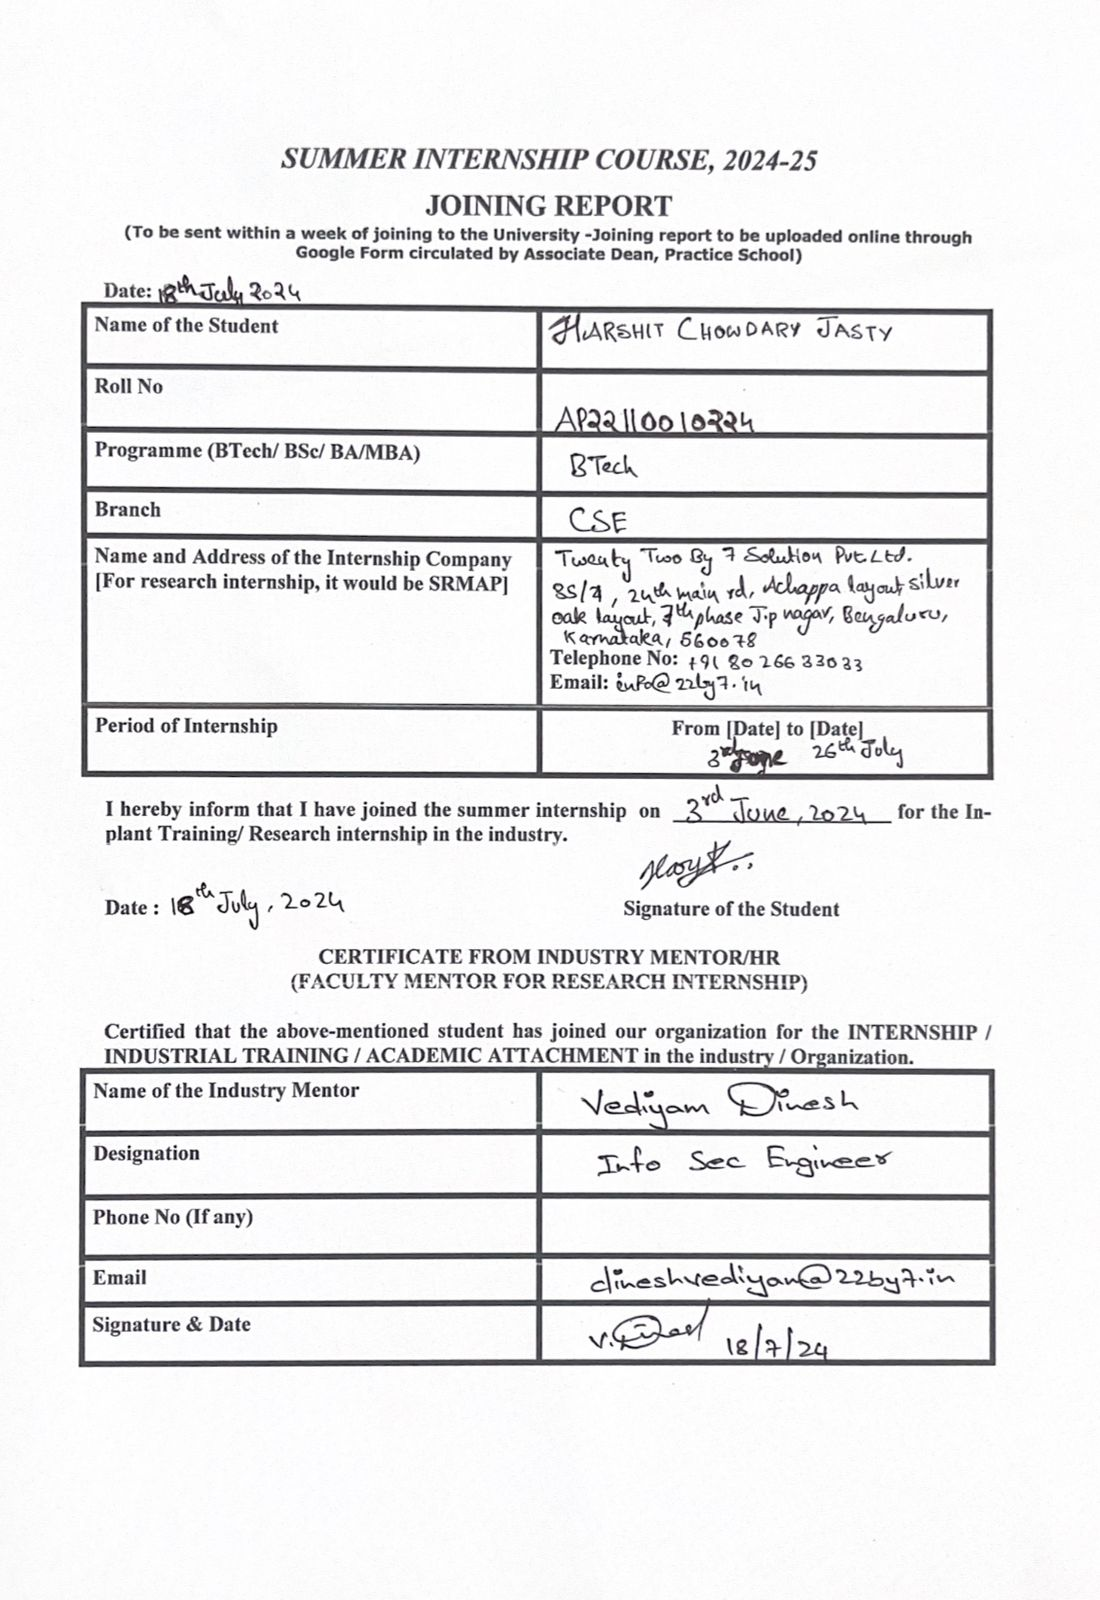 SUMMER INTERNSHIP COURSE, 2024-25
JOINING REPORT
(To be sent within a week of joining to the University -Joining report to be uploaded online through
Google Form circulated by Associate Dean, Practice School)
Date: 18th July 2024
Name of the Student HARSHIT CHOWDARY JASTY
Roll No
AP22110010224
Programme (BTech/ BSc/ BA/MBA) BTech
Branch CSE
Name and Address of the Internship Company Twenty Two By 7 Solution Pvt. Ltd.
[For research internship, it would be SRMAP] 85/7, 24th main rd, Achappa layout, silver
oak layout, 7th phase J.p nagar, Bengaluru,
Karnataka, 560078
Telephone No: +91 80 266 33033
Email: info@22by7.in
Period of Internship From [Date] to [Date]
3rd June 26th July
I hereby inform that I have joined the summer internship on 3rd June, 2024 for the In-
plant Training/ Research internship in the industry.
Date : 18th July, 2024
Signature of the Student
CERTIFICATE FROM INDUSTRY MENTOR/HR
(FACULTY MENTOR FOR RESEARCH INTERNSHIP)
Certified that the above-mentioned student has joined our organization for the INTERNSHIP /
INDUSTRIAL TRAINING / ACADEMIC ATTACHMENT in the industry / Organization.
Name of the Industry Mentor Vediyam Dinesh
Designation Info Sec Engineer
Phone No (If any)
Email dineshvediyam@22by7.in
Signature & Date V. Dinesh 18/7/24